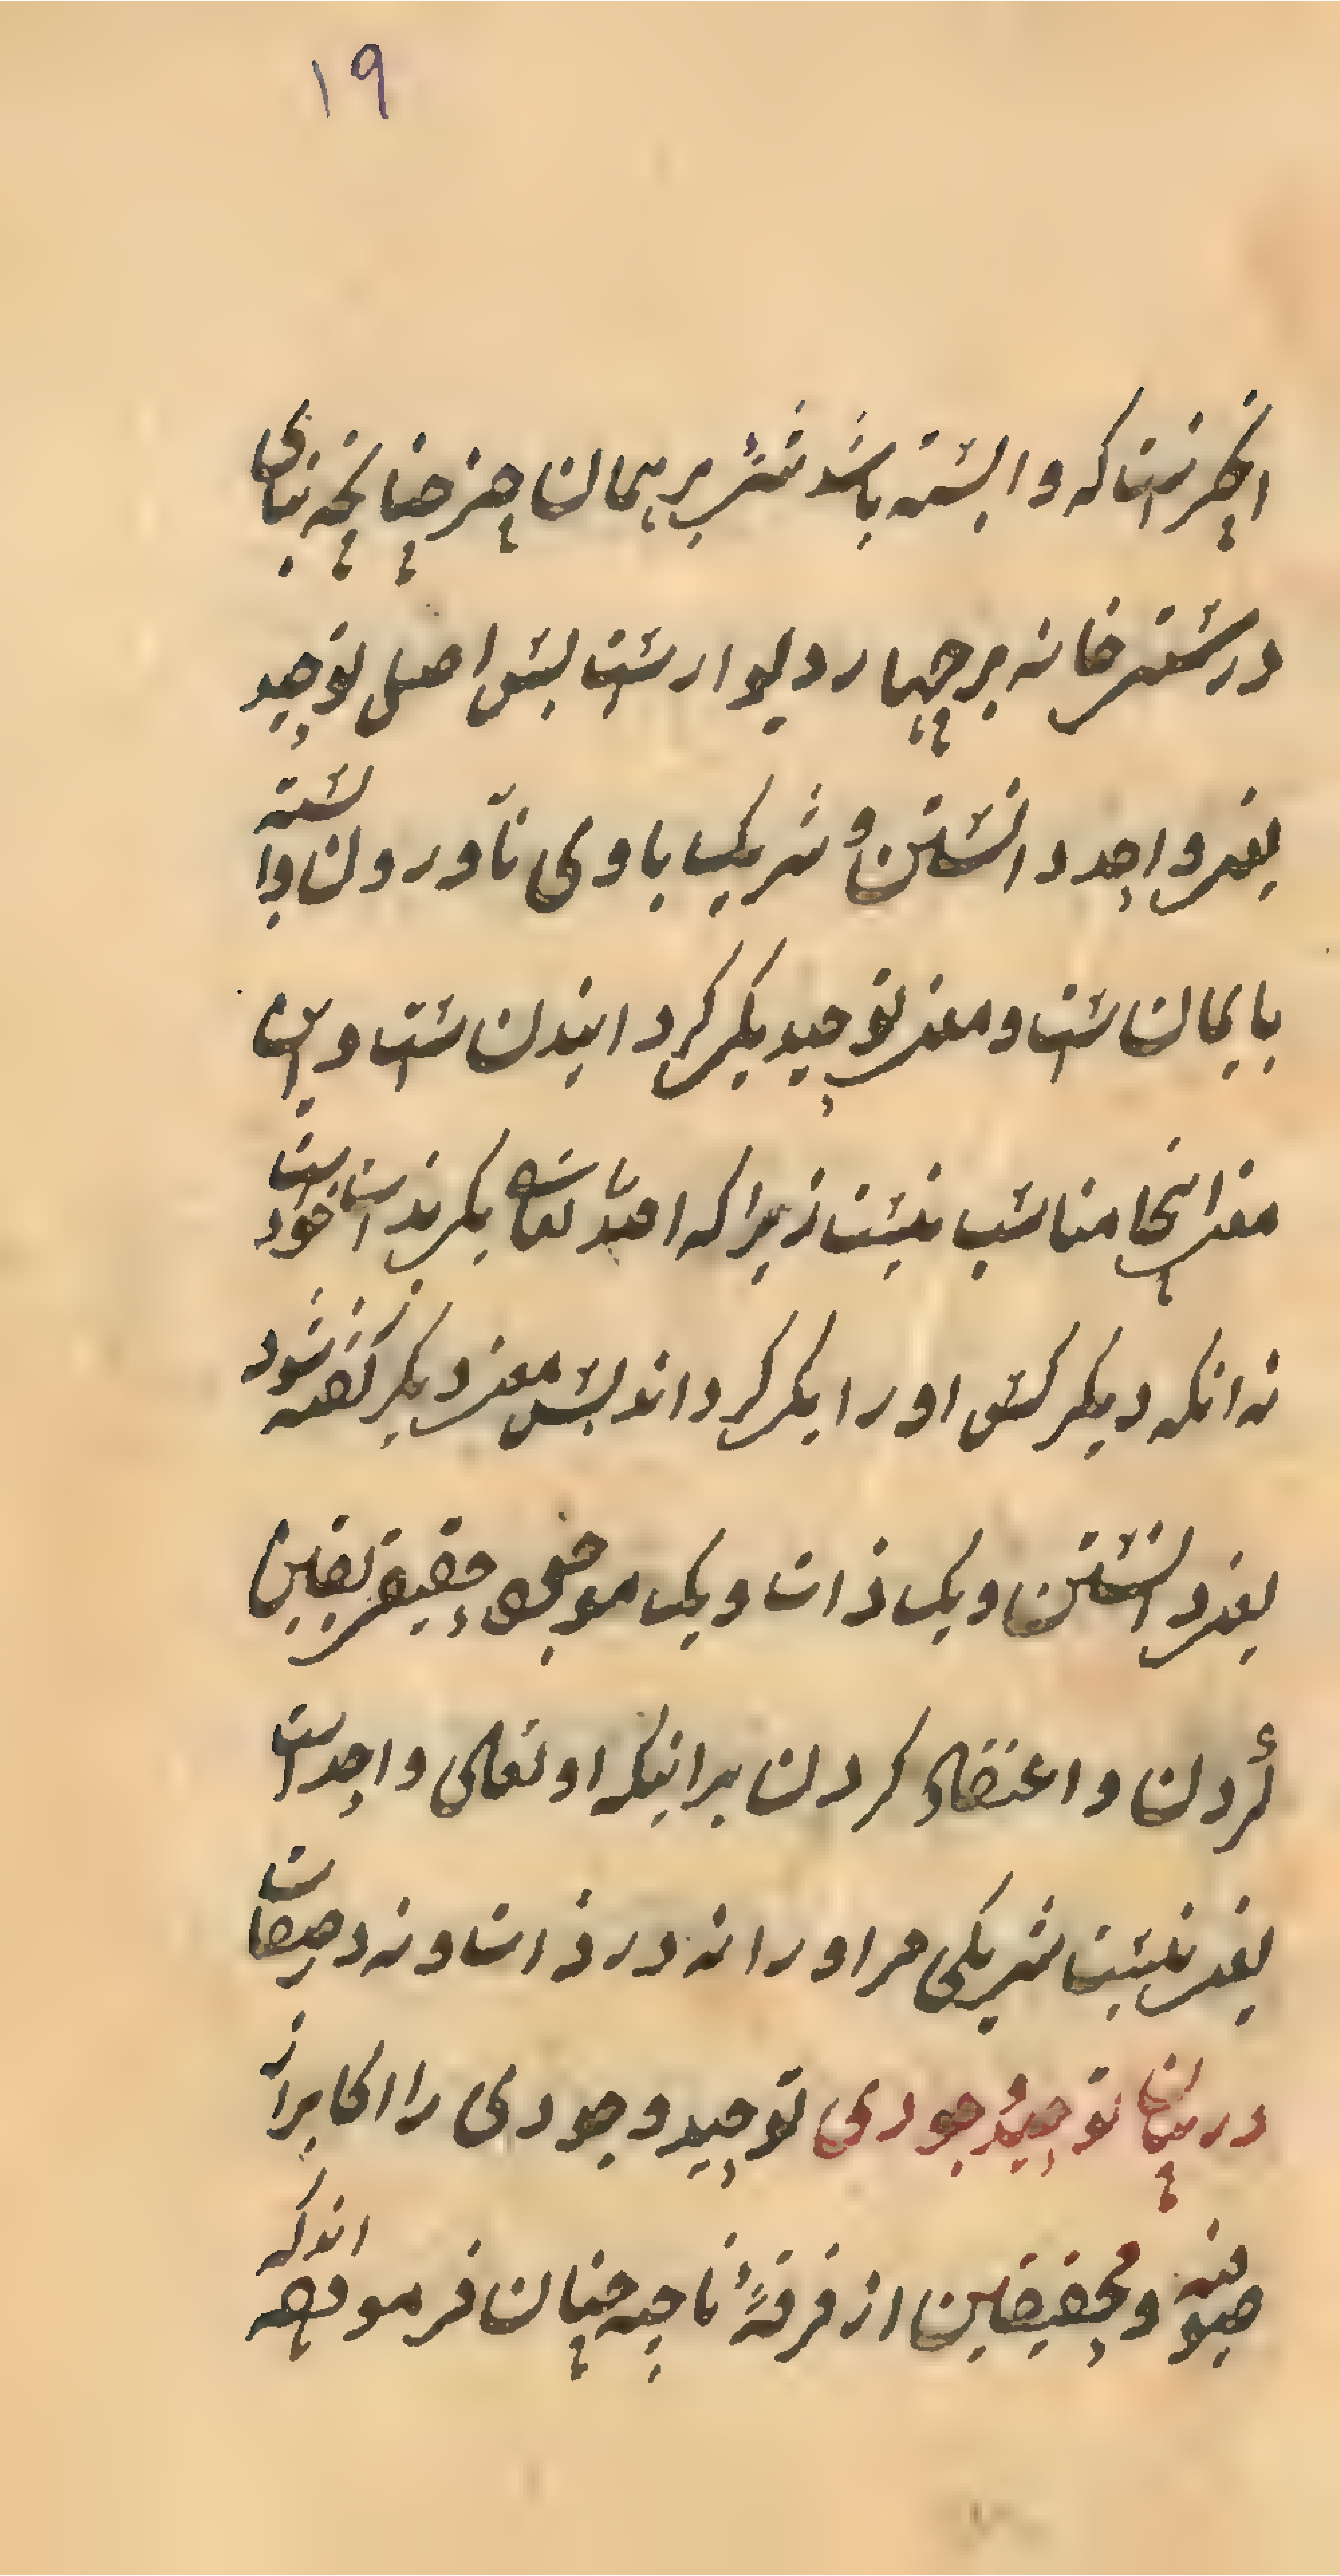 ۱۹
انچیزست که وابسته باشد شئ بر همان چیز چنانچه بنای
درستی خانه بر چهار دیوارست پس اصل توحید
یعنی واحد دانستن و شریک با وی ناوردن وابسته
بایمان ست و معنی توحید یکی کردانیدن ست و این
معنی اینجا مناسب نیست زیرا که الله تعالی یکی بذات خود است
نه انکه دیکر کسی او را یکی کرداند پس معنی دیکر کفته شود
یعنی دانستن و یک ذات و یک موجود حقیقی یقین
کردن و اعتقاد کردن برانیکه او تعالی واحد است
یعنی نیست شریکی مر او را نه در ذات و نه در صفات
در بیان توحید وجودی توحید وجودی را اکابر از
صوفیه و محققین از فرقهٔ ناجیه چنان فرموده اند که